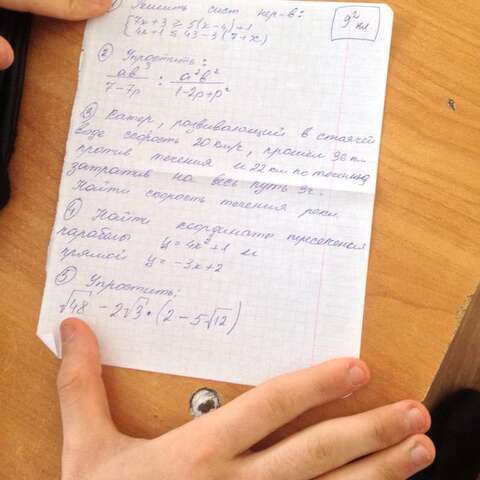 ① Решить сист. нер-в:
9² кл.
{7x+3 ≥ 5(x-4)+1
4x+1 ≤ 43-3(7+x)
② Упростить:
ab³/(7-7p) : a²b²/(1-2p+p²)
③ Катер, развивающий в стоячей
воде скорость 20 км/ч, прошёл 36 км
против течения и 22 км по течению,
затратив на весь путь 3ч.
Найти скорость течения реки.
④ Найти координаты пересечения
параболы y=4x²+1 и
прямой y=-3x+2
⑤ Упростить:
√48 - 2√3 · (2-5√12)